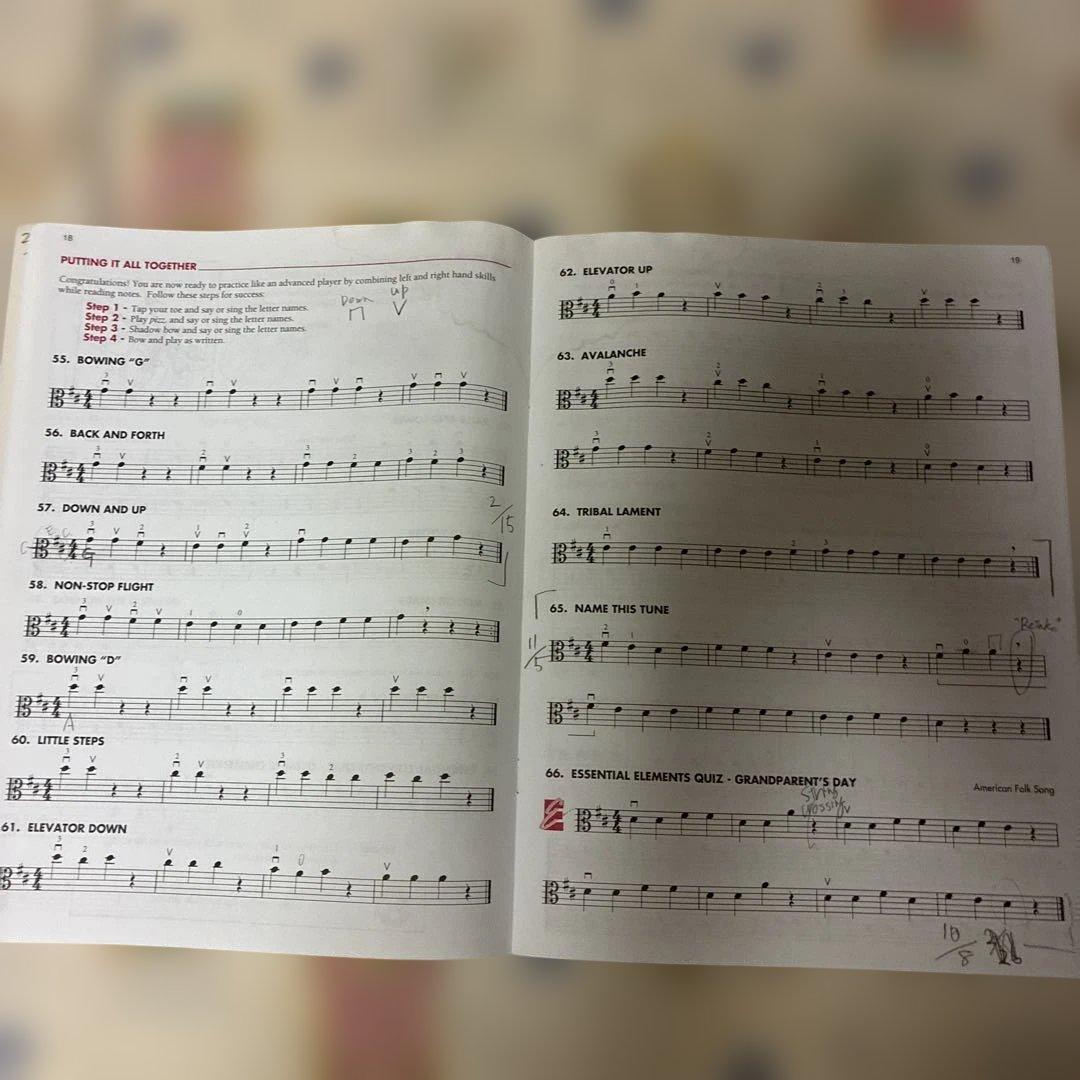 2
18
PUTTING IT ALL TOGETHER
Congratulations! You are now ready to practice like an advanced player by combining left and right hand skills
while reading notes. Follow these steps for success:
Step 1 - Tap your toe and say or sing the letter names.
Step 2 - Play pizz. and say or sing the letter names.
Step 3 - Shadow bow and say or sing the letter names.
Step 4 - Bow and play as written.
Down up
55. BOWING "G"
56. BACK AND FORTH
57. DOWN AND UP
2/15
58. NON-STOP FLIGHT
59. BOWING "D"
A
60. LITTLE STEPS
61. ELEVATOR DOWN
19
62. ELEVATOR UP
63. AVALANCHE
64. TRIBAL LAMENT
65. NAME THIS TUNE
11/5
66. ESSENTIAL ELEMENTS QUIZ - GRANDPARENT'S DAY
American Folk Song
String
crossing
10/8